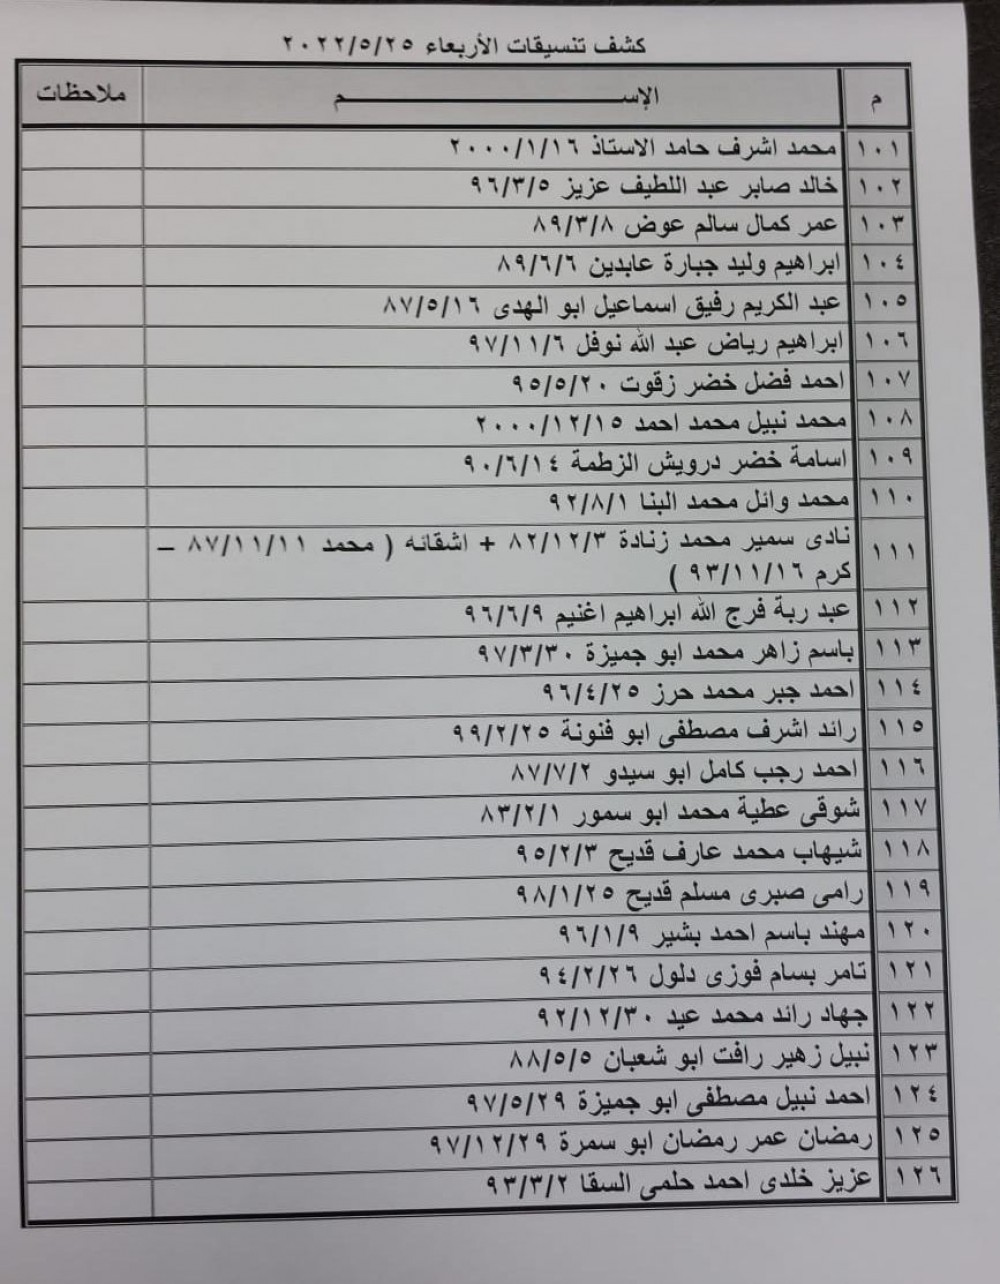 كشف تنسيقات الأربعاء ٢٠٢٢/٥/٢٥
م الإســـــــــم ملاحظات
١٠١ محمد اشرف حامد الاستاذ ٢٠٠٠/١/١٦
١٠٢ خالد صابر عبد اللطيف عزيز ٩٦/٣/٥
١٠٣ عمر كمال سالم عوض ٨٩/٣/٨
١٠٤ ابراهيم وليد جبارة عابدين ٨٩/٦/٦
١٠٥ عبد الكريم رفيق اسماعيل ابو الهدى ٨٧/٥/١٦
١٠٦ ابراهيم رياض عبد الله نوفل ٩٧/١١/٦
١٠٧ احمد فضل خضر زقوت ٩٥/٥/٢٠
١٠٨ محمد نبيل محمد احمد ٢٠٠٠/١٢/١٥
١٠٩ اسامة خضر درويش الزطمة ٩٠/٦/١٤
١١٠ محمد وائل محمد البنا ٩٢/٨/١
١١١ نادى سمير محمد زنادة ٨٢/١٢/٣ + اشقائه ( محمد ٨٧/١١/١١ –
كرم ٩٣/١١/١٦ )
١١٢ عبد ربة فرج الله ابراهيم اغنيم ٩٦/٦/٩
١١٣ باسم زاهر محمد ابو جميزة ٩٧/٣/٣٠
١١٤ احمد جبر محمد حرز ٩٦/٤/٢٥
١١٥ رائد اشرف مصطفى ابو فنونة ٩٩/٢/٢٥
١١٦ احمد رجب كامل ابو سيدو ٨٧/٧/٢
١١٧ شوقى عطية محمد ابو سمور ٨٣/٢/١
١١٨ شيهاب محمد عارف قديح ٩٥/٢/٣
١١٩ رامى صبرى مسلم قديح ٩٨/١/٢٥
١٢٠ مهند باسم احمد بشير ٩٦/١/٩
١٢١ تامر بسام فوزى دلول ٩٤/٢/٢٦
١٢٢ جهاد رائد محمد عيد ٩٢/١٢/٣٠
١٢٣ نبيل زهير رافت ابو شعبان ٨٨/٥/٥
١٢٤ احمد نبيل مصطفى ابو جميزة ٩٧/٥/٢٩
١٢٥ رمضان عمر رمضان ابو سمرة ٩٧/١٢/٢٩
١٢٦ عزيز خلدى احمد حلمى السقا ٩٣/٣/٢